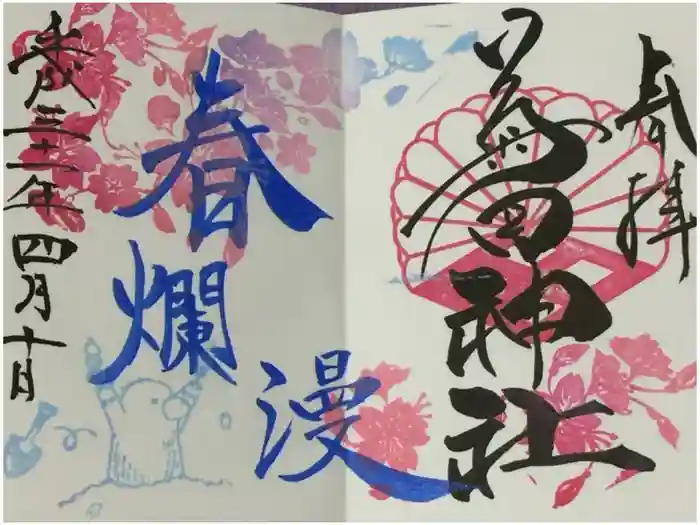 奉拝
菊田神社
春
爛
漫
平成三十一年四月十日